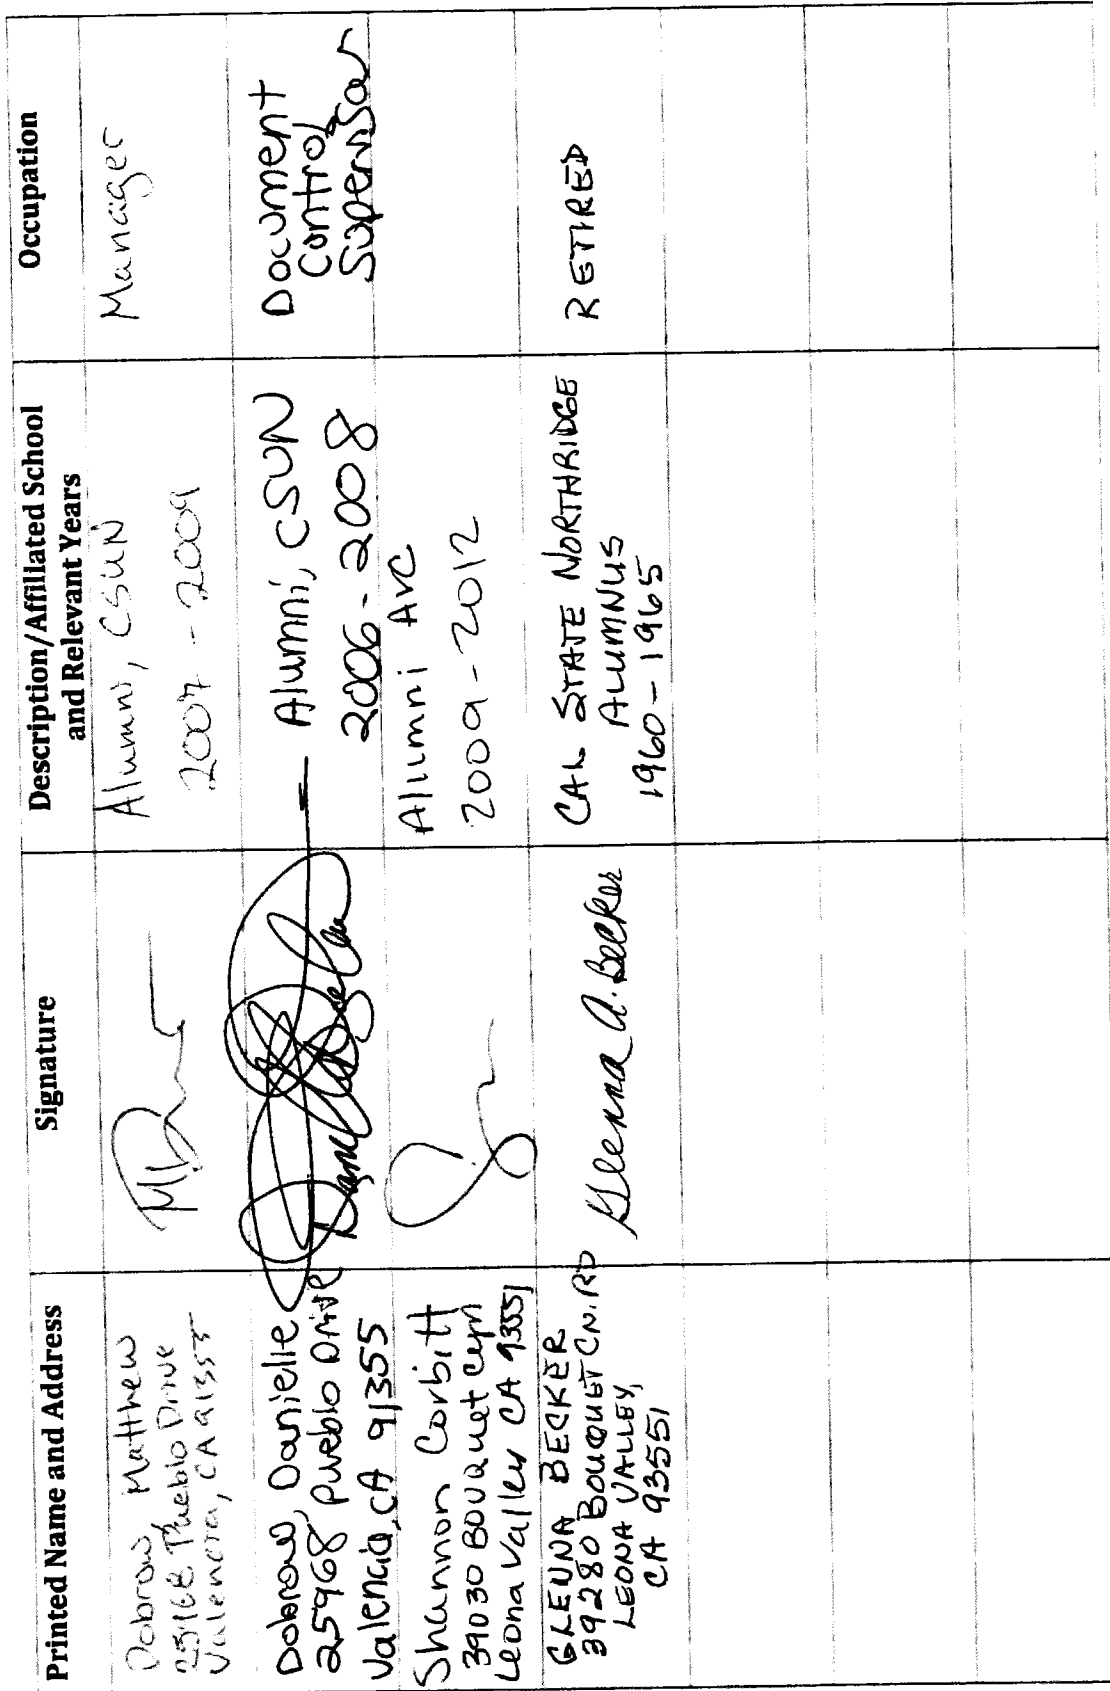 Printed Name and Address
Signature
Description/Affiliated School
and Relevant Years
Occupation
Dobrow, Matthew
25968 Pueblo Drive
Valencia, CA 91355
Alumni, CSUN
2007 - 2009
Manager
Dobrow, Danielle
25968 Pueblo Drive
Valencia, CA 91355
Alumni, CSUN
2006 - 2008
Document
Control
Supervisor
Shannon Corbitt
39030 Bouquet Cyn
Leona Valley CA 93551
Alumni AVC
2009 - 2012
GLENNA BECKER
39280 BOUQUET CN. RD
LEONA VALLEY,
CA 93551
Glenna A. Becker
CAL STATE NORTHRIDGE
ALUMNUS
1960 - 1965
RETIRED